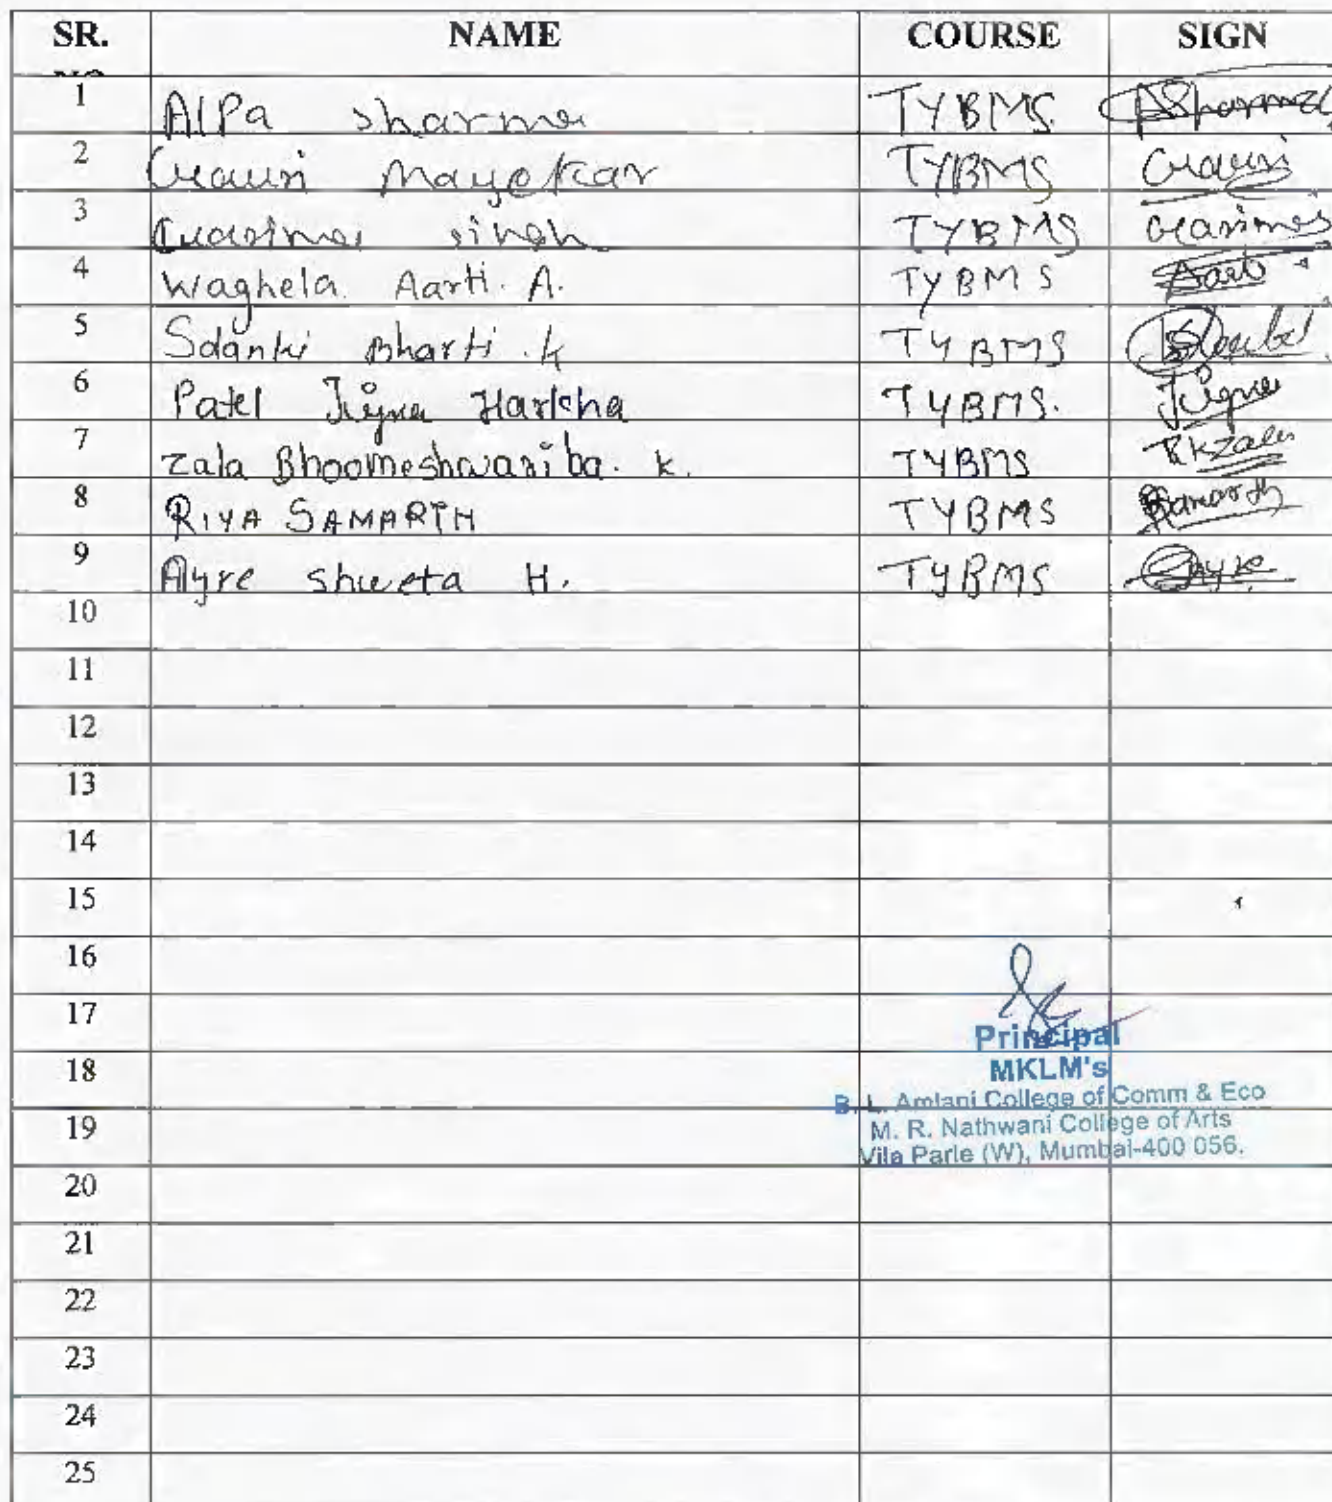 SR. NAME COURSE SIGN
NO
1 Alpa sharma TYBMS. Sharma
2 Gauri Mayekar TYBMS Gauri
3 Garima singh TYBMS Garima
4 Waghela Aarti. A. TYBMS Aarti
5 Solanki Bharti. k TYBMS
6 Patel Jigna Harkha TYBMS. Jigna
7 Zala Bhoomeshwariba. k. TYBMS Bkzala
8 RIYA SAMARTH TYBMS Samarth
9 Ayre shweta H. TYBMS Ayre
10
11
12
13
14
15
16
17
Principal
18
MKLM's
B. L. Amlani College of Comm & Eco
19
M. R. Nathwani College of Arts
Vile Parle (W), Mumbai-400 056.
20
21
22
23
24
25